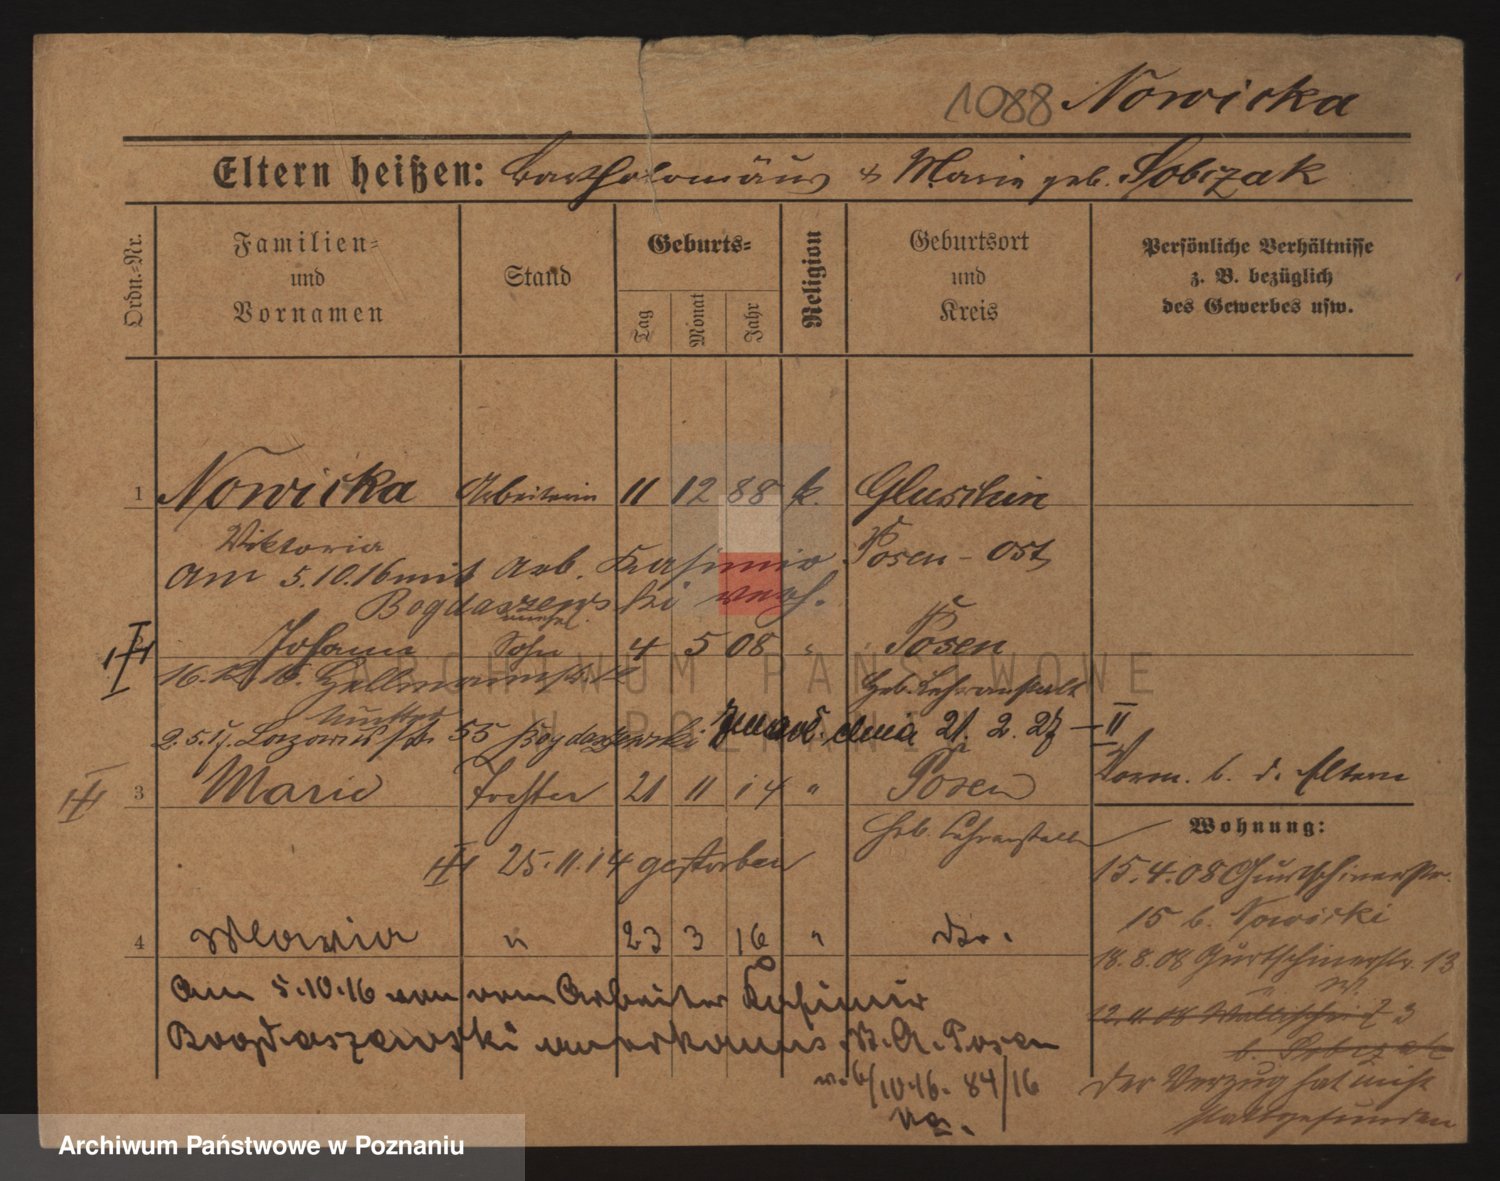 1088 Nowicka
Eltern heißen: Bartholomäus & Marie geb. Sobczak
Ordn.=Nr.
Familien=
und
Vornamen
Stand
Geburts=
Tag
Monat
Jahr
Religion
Geburtsort
und
Kreis
Persönliche Verhältnisse
z. B. bezüglich
des Gewerbes usw.
1 Nowicka Arbeiterin 11 12 88 k. Gluschin
Viktoria Posen - Ost
Am 5.10.16 mit Arb. Kasimir
Bogdaszewski verh.
unehel.
Johann Sohn 4 5 08 " Posen
Geb. Lehranstalt
2.5.17. Lazarusstr. 55 Bogdaszewski 21. 2. 27 - II
3 Marie Tochter 21 11 14 " Posen
Geb. Lehranstalt
25.11.14 gestorben
4 Maria " 23 3 16 " dto.
Am 5.10.16 von vom Arbeiter Kasimir
Bogdaszewski anerkannt St. A. Posen
v. 6/10.16. 84/16
Vorm. b. d. Eltern
Wohnung:
15.4.08 Gurtschinerstr.
15 b. Nowicki
18.8.08 Gurtschinerstr. 13
12.11.08 Wallischei 73
b. Sobczak
Der Verzug hat nicht
stattgefunden
ARCHIWUM PAŃSTWOWE
W POZNANIU
Archiwum Państwowe w Poznaniu